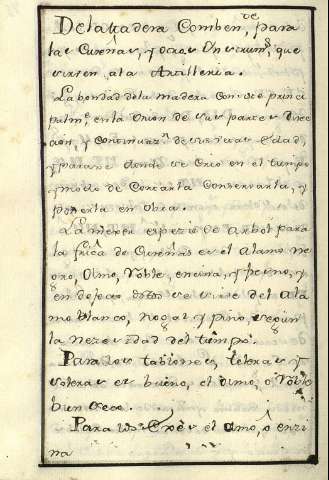 De la Madera Comben.te para
las Cureñas, y otros Ynstrum.s que
sirven ala Artilleria.
La bondad dela madera Con
palm.te en la Union de sus partes
y de su edad,
y parage donde se Crio en el tiempo
y modo de Cortarla Conservarla, y
ponerla en obra.
La mexor especie de Arbol para
la fric.a de Cureñas es el Alamo ne
gro, Olmo, Roble, encina, y fresno, y
en de estos se sirve del Ala
mo blanco, nogal y pino, según
la nezesidad del tiempo.
Para los tablones, teleras y
soleras es bueno, el olmo, o Roble
bien seco.
Para los Exes es el olmo, o enzi
na